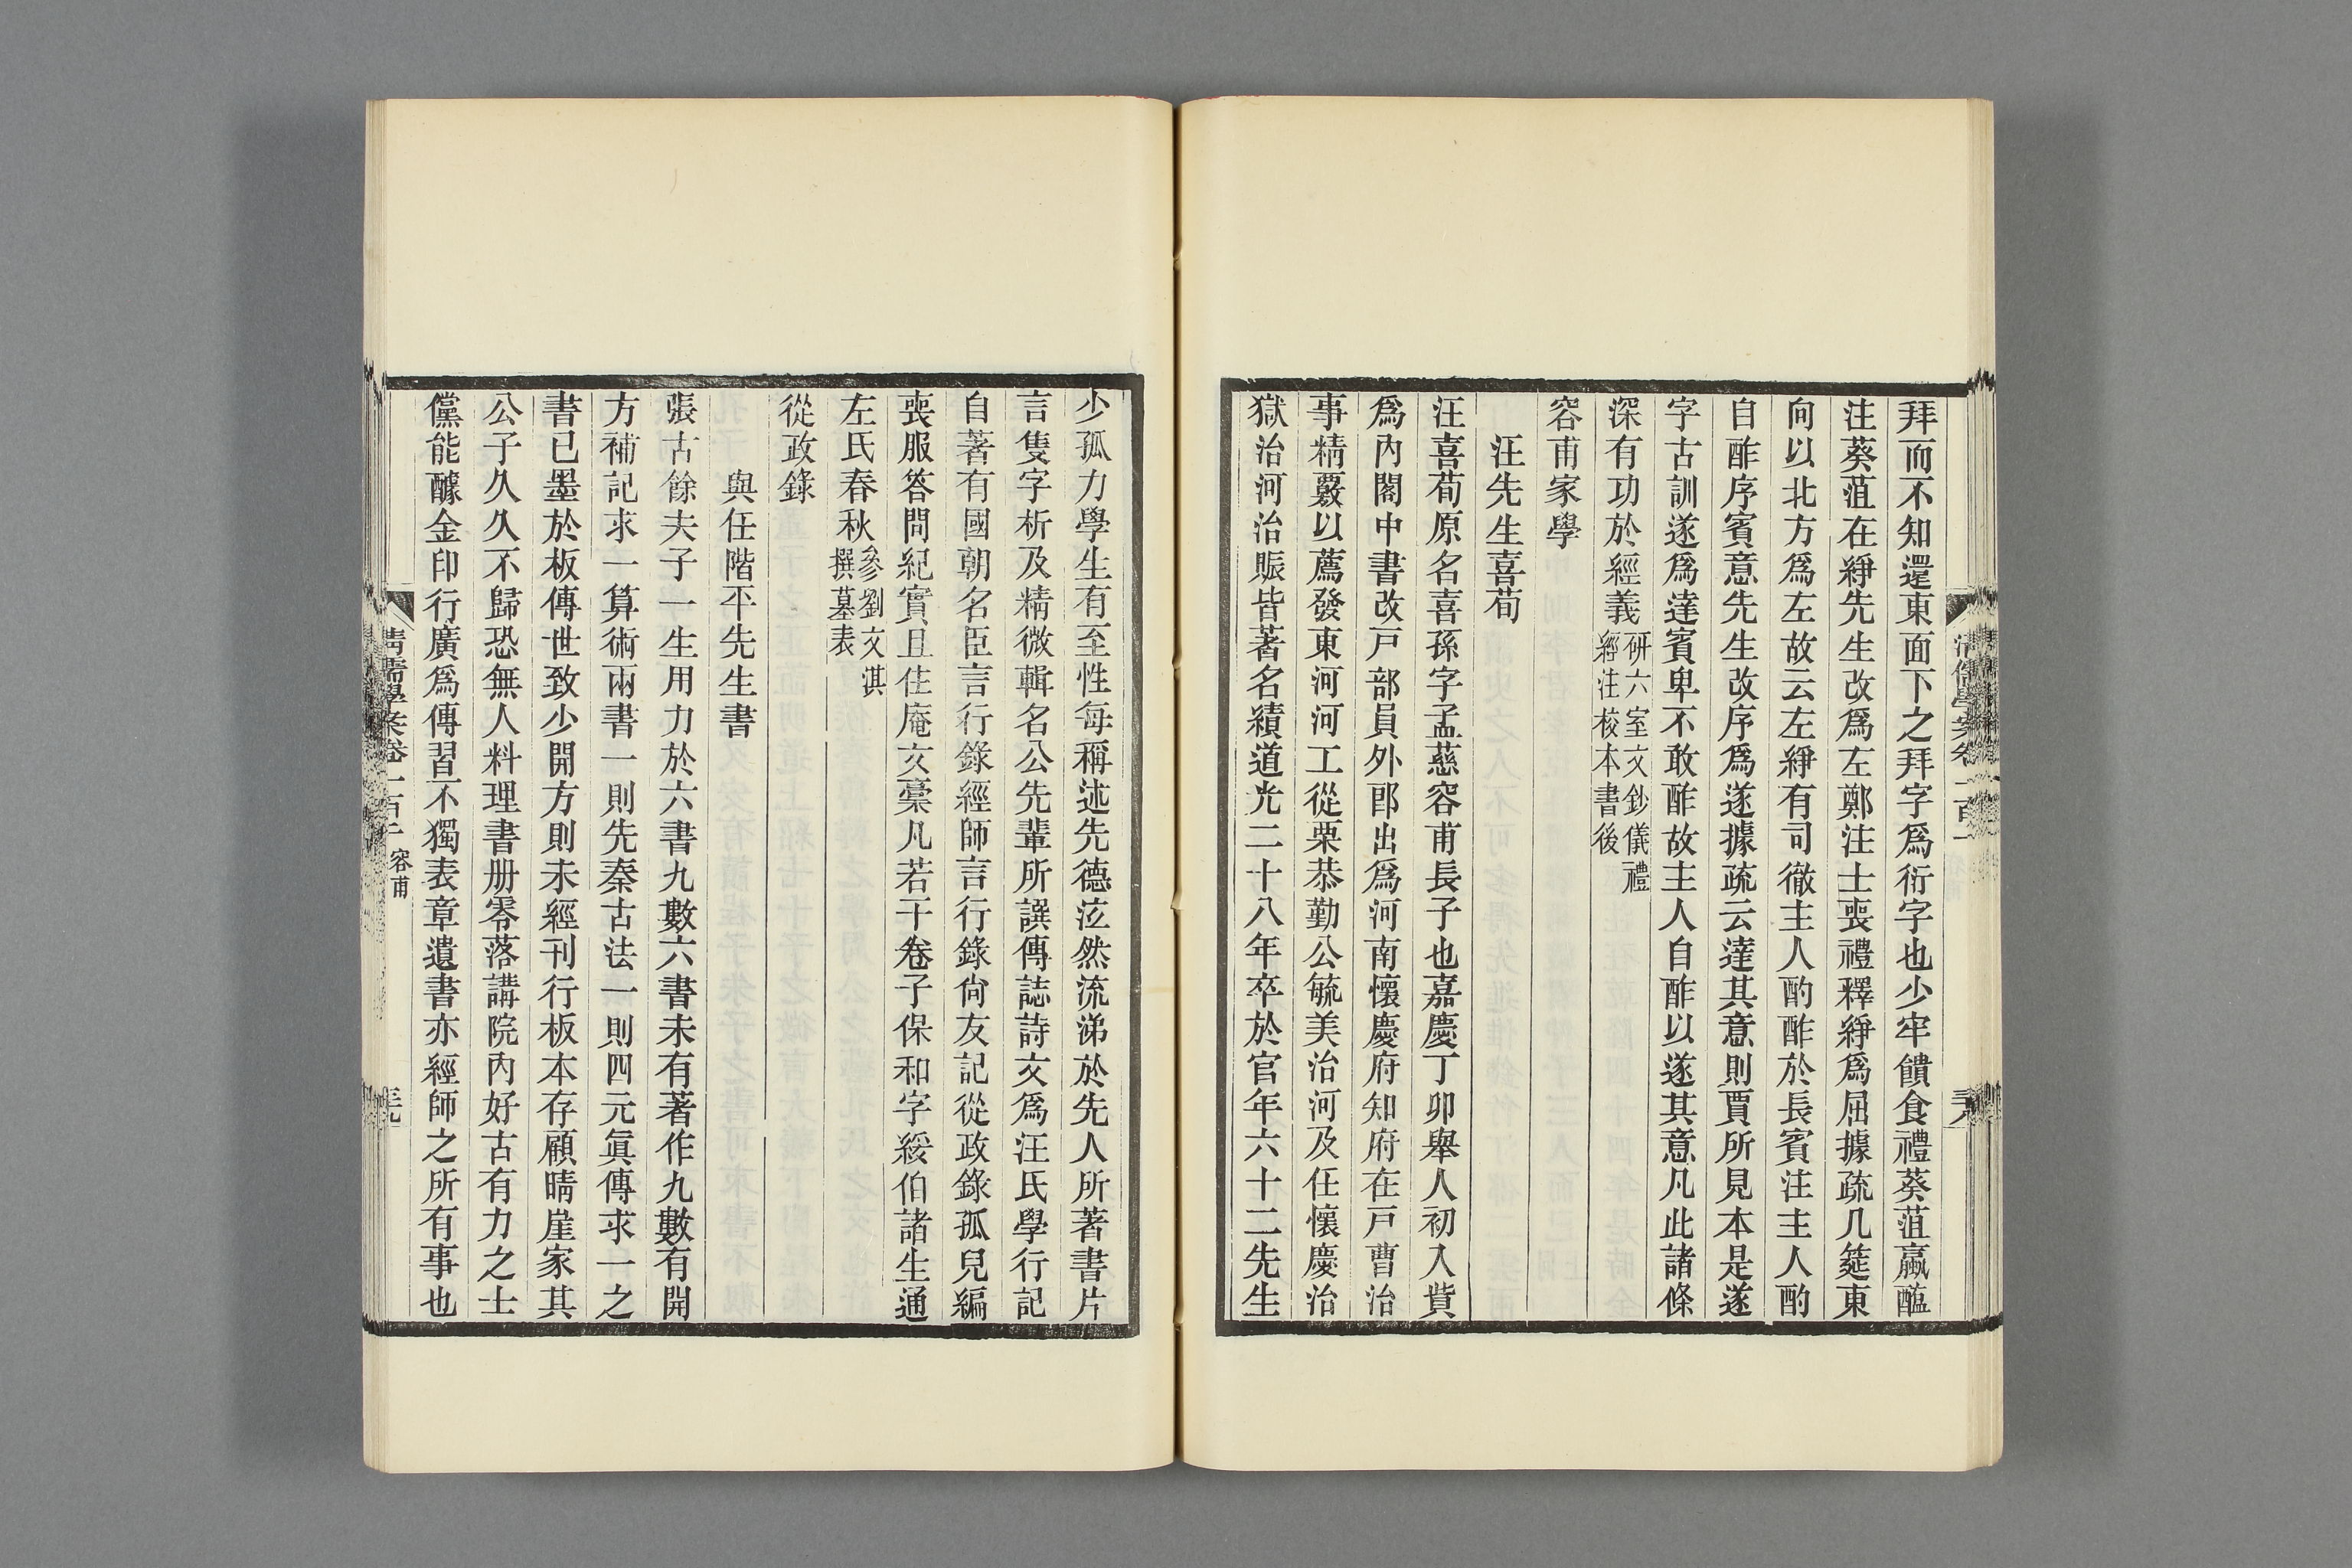 拜而不知還東面下之拜字爲衍字也少牢饋食禮葵菹蠃醢
注葵菹在綪先生改爲左鄭注士喪禮釋綪爲屈據疏几筵東
向以北方爲左故云左綪有司徹主人酌酢於長賓注主人酌
自酢序賓意先生改序爲遂據疏云達其意則賈所見本是遂
字古訓遂爲達賓卑不敢酢故主人自酢以遂其意凡此諸條
深有功於經義研六室文鈔儀禮
經注校本書後
容甫家學
汪先生喜荀
汪喜荀原名喜孫字孟慈容甫長子也嘉慶丁卯舉人初入貲
爲內閣中書改戸部員外郎出爲河南懷慶府知府在戸曹治
事精覈以薦發東河河工從栗恭勤公毓美治河及任懷慶治
獄治河治賑皆著名績道光二十八年卒於官年六十二先生
少孤力學生有至性每稱述先德泫然流涕於先人所著書片
言隻字析及精微輯名公先輩所譔傳誌詩文爲汪氏學行記
自著有國朝名臣言行錄經師言行錄尙友記從政錄孤兒編
喪服答問紀實且住庵文槀凡若干卷子保和字綏伯諸生通
左氏春秋參劉文淇
撰墓表
從政錄
與任階平先生書
張古餘夫子一生用力於六書九數六書未有著作九數有開
方補記求一算術兩書一則先秦古法一則四元眞傳求一之
書已墨於板傳世致少開方則未經刊行板本存顧晴崖家其
公子久久不歸恐無人料理書册零落講院內好古有力之士
儻能醵金印行廣爲傳習不獨表章遺書亦經師之所有事也
清儒學案卷一百二 容甫